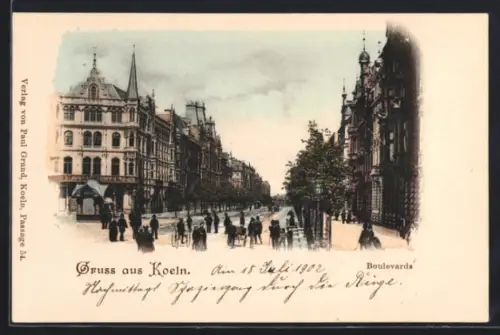 Verlag von Paul Grund, Koeln, Passage 54.
Gruss aus Koeln.
Am 18 Juli 1902
Boulevards
Nachmittags Spaziergang durch die Ringe.